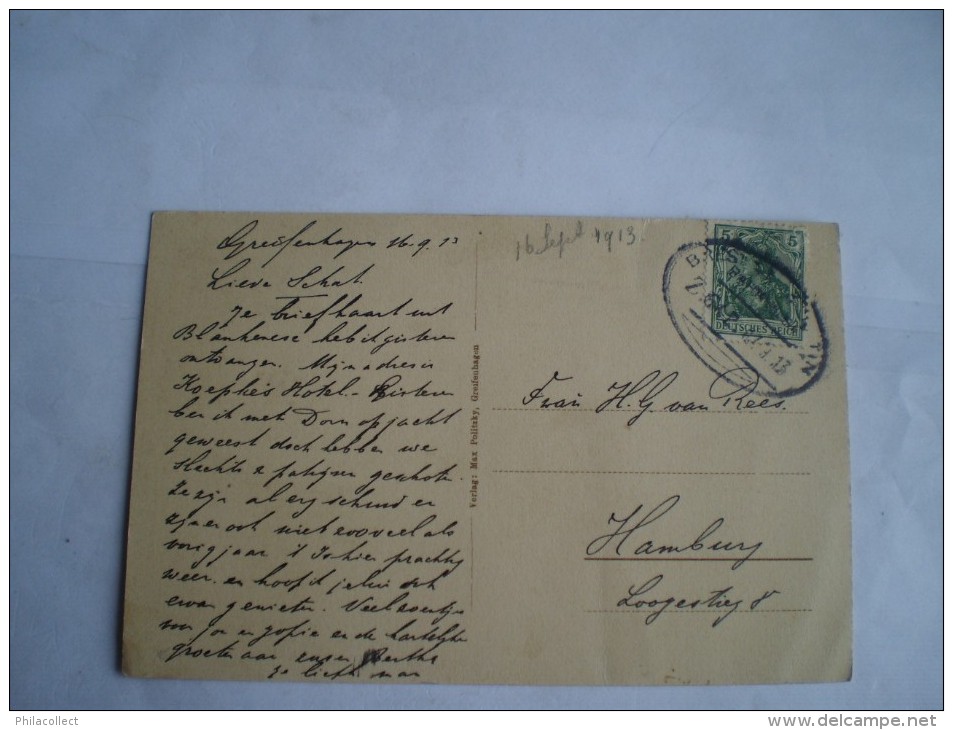 Greifenhagen 16.9.13
Lieve Schat.
Je briefkaart uit
Blankenese heb ik gisteren
ontvangen. Mijn adres is
Koepke's Hotel. Gisteren
ben ik met Dorn op jacht
geweest doch hebben we
slechts 2 patrijzen geschoten.
Ze zijn al erg schuw en
zijn er ook niet zooveel als
vorig jaar. 't Is hier prachtig
weer en hoop ik jelui ook
ervan genieten. Veel zoentjes
voor jou en en de hartelijke
groeten aan Bertha
je man
16 Sept 1913.
Verlag: Max Politzky, Greifenhagen
5 5
DEUTSCHES REICH
BAHN
TIN
9.13
Frau H. G. van Rees.
Hamburg
Loogestieg 8
Philacollect
delcampe.net